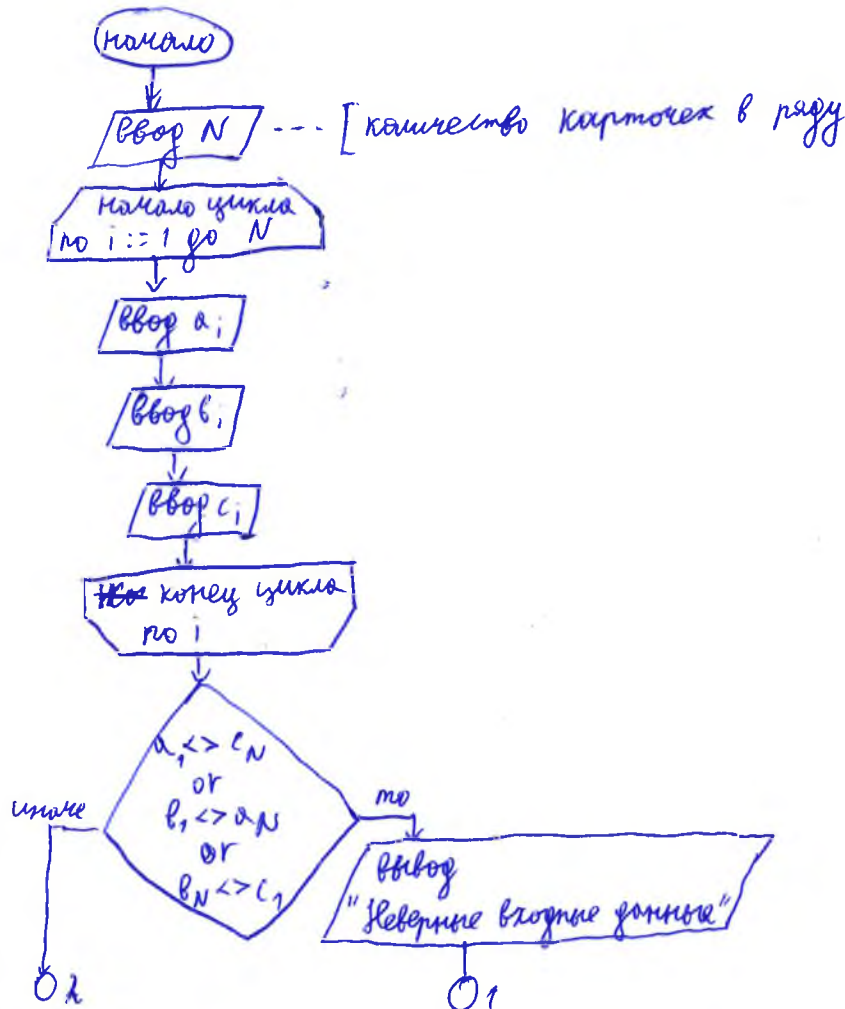 начало
ввод N --- [количество карточек в ряду
начало цикла
по i := 1 до N
ввод aᵢ
ввод bᵢ
ввод cᵢ
конец цикла
по i
a₁ <> c_N
or
b₁ <> a_N
or
b_N <> c₁
иначе
то
вывод
"Неверные входные данные"
2
1